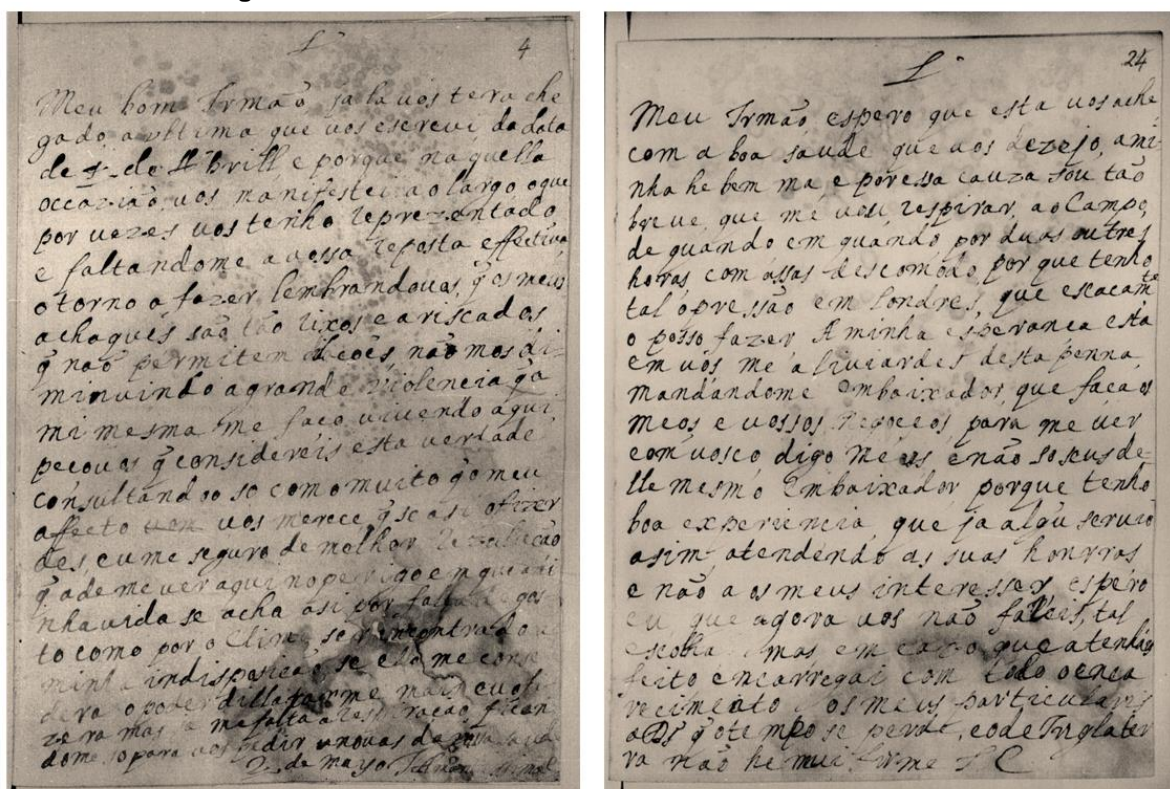 4
Meu bom Irmão ja la vos tera che
gado, a ultima que vos escrevi da data
de 4 de Abrill e porque naquella
occazião vos manifestei ao largo oque
por vezes vos tenho reprezentado
e faltandome a vossa reposta effectiva
o torno a fazer lembrandovas, q̃ os meus
achaques são tão rixos e ariscados
q̃ não permitem não mos di
minuindo a grande violencia q̃ a
mi mesma me faço vivendo aqui
peçovos q̃ considereis esta verdade
consultandoo so com o muito q̃ o meu
affecto vos merece, q̃ se asi o fizer
des, eu me seguro de melhor rezulução
q̃ a de me ver aqui no perigo em que a mi
nha vida se acha asi por falta de gos
to como por o Clima ser incontrado a
minha indispocição se ella me conse
dera o poder dillatarme mais eu o fi
zera mas a me falta a respiração fican
dome so para vos pedir novas de
2 de Mayo
24
Meu Irmão, espero que esta vos ache
com a boa saude que vos dezejo, a mi
nha he bem ma e por essa cauza sou tão
breve, que me vou respirar, ao Campo,
de quando em quando por duas outres
horas, com assas descomodo por que tenho
tal opressão em Londres, que escacamte
o posso fazer A minha esperanca esta
em vós me aliviardes desta penna
mandandome Embaixador, que faca os
meos e vossos negoceos para me ver
com vosco digo meus e não so seus de
lle mesmo Embaixador porque tenho
boa experiencia que ja algũ servio
asim, atendendo as suas honrras
e não a os meus interesses, espero
eu que agora vos não faleis, tal
escolha mas em cazo que a tenhaes
feito encarregai com todo o enca
recimento os meus particulares
a Ds q̃ o tempo se perde, e o de Inglater
ra não he mui firme